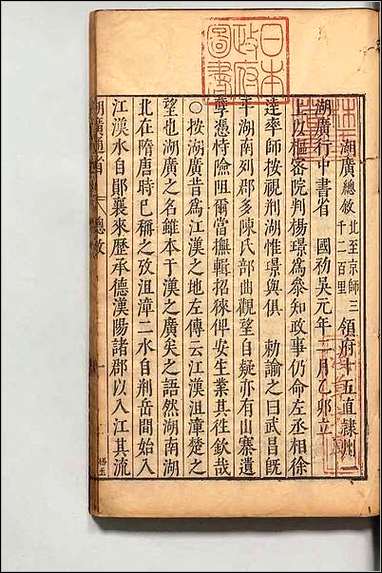 日本
政府
圖書
湖廣總敘 北至京師三千二百里 領府十五直隸州二
湖廣行中書省 國初吳元年二月乙卯立
上以樞密院判楊璟為參知政事仍命左丞相徐
達率師按視荆湖惟璟與俱 勅諭之曰武昌既
平湖南列郡多陳氏部曲觀望自疑亦有山寨遺
孽憑恃險阻爾當撫輯招徠俾安生業其往欽哉
○按湖廣昔為江漢之地左傳云江漢沮漳楚之
望也湖廣之名雖本于漢之廣矣之語然湖南湖
北在隋唐時已稱之攷沮漳二水自荆岳間始入
江漢水自鄖襄來歷承德漢陽諸郡以入江其流
湖廣通省 總敘 一